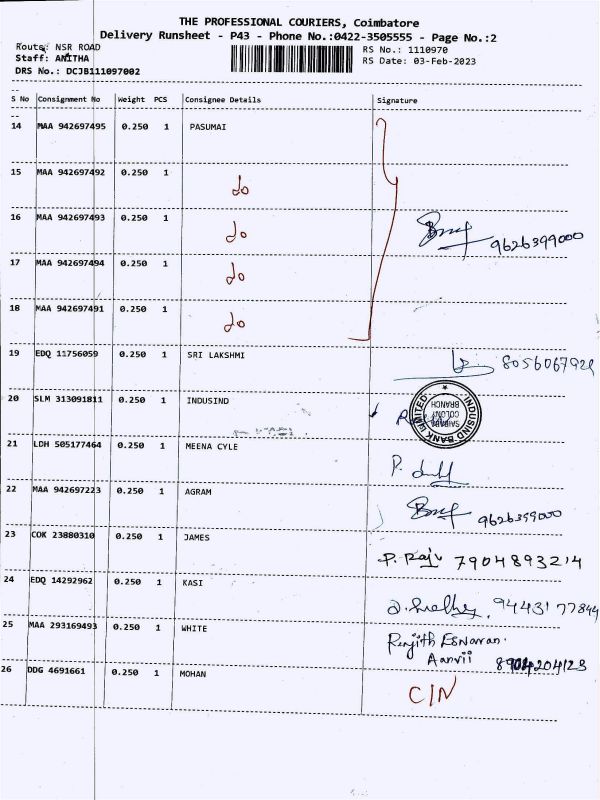 THE PROFESSIONAL COURIERS, Coimbatore
Delivery Runsheet - P43 - Phone No.:0422-3505555 - Page No.:2
Route: NSR ROAD RS No.: 1110970
Staff: ANITHA RS Date: 03-Feb-2023
DRS No.: DCJB111097002
S No Consignment No Weight PCS Consignee Details Signature
14 MAA 942697495 0.250 1 PASUMAI
15 MAA 942697492 0.250 1 do
16 MAA 942697493 0.250 1 do 9626399000
17 MAA 942697494 0.250 1 do
18 MAA 942697491 0.250 1 do
19 EDQ 11756059 0.250 1 SRI LAKSHMI 8056067921
20 SLM 313091811 0.250 1 INDUSIND
INDUSIND BANK LIMITED
SAIBABA
COLONY
BRANCH
21 LDH 505177464 0.250 1 MEENA CYLE P.
22 MAA 942697223 0.250 1 AGRAM 9626399000
23 COK 23880310 0.250 1 JAMES P. Raju 7904893214
24 EDQ 14292962 0.250 1 KASI 9443177844
25 MAA 293169493 0.250 1 WHITE Renjith Eswaran.
Aanvii 8904204123
26 DDG 4691661 0.250 1 MOHAN C/N